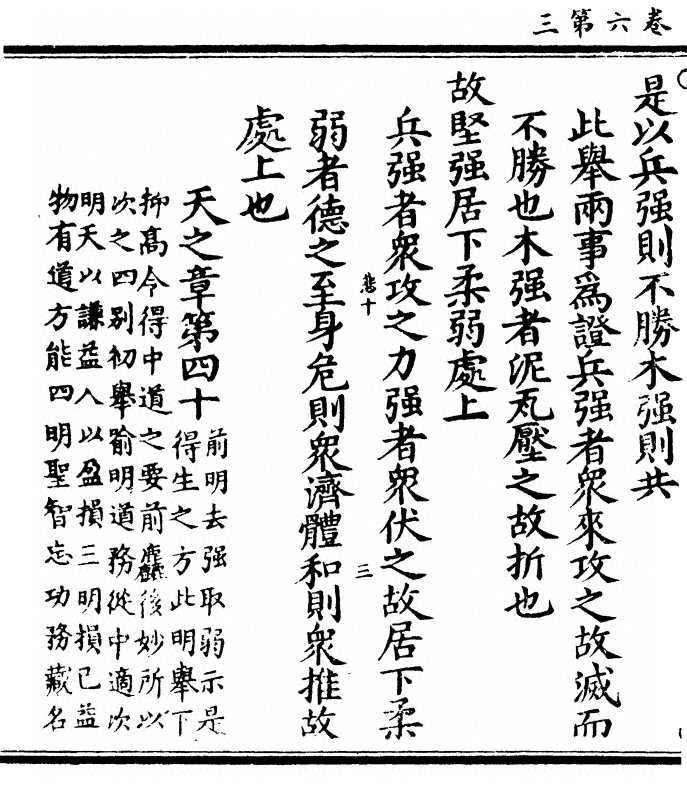 卷六第三
是以兵强則不勝木强則共
此舉兩事爲證兵强者衆來攻之故滅而
不勝也木强者泥瓦壓之故折也
故堅强居下柔弱處上
兵强者衆攻之力强者衆伏之故居下柔
弱者德之至身危則衆濟體和則衆推故
處上也
悲十
三
天之章第四十
前明去强取弱示是
得生之方此明舉下
抑髙今得中道之要前麤後妙所以
次之四别初舉喻明道務從中適次
明天以謙益人以盈損三明損已益
物有道方能四明聖智忘功務藏名